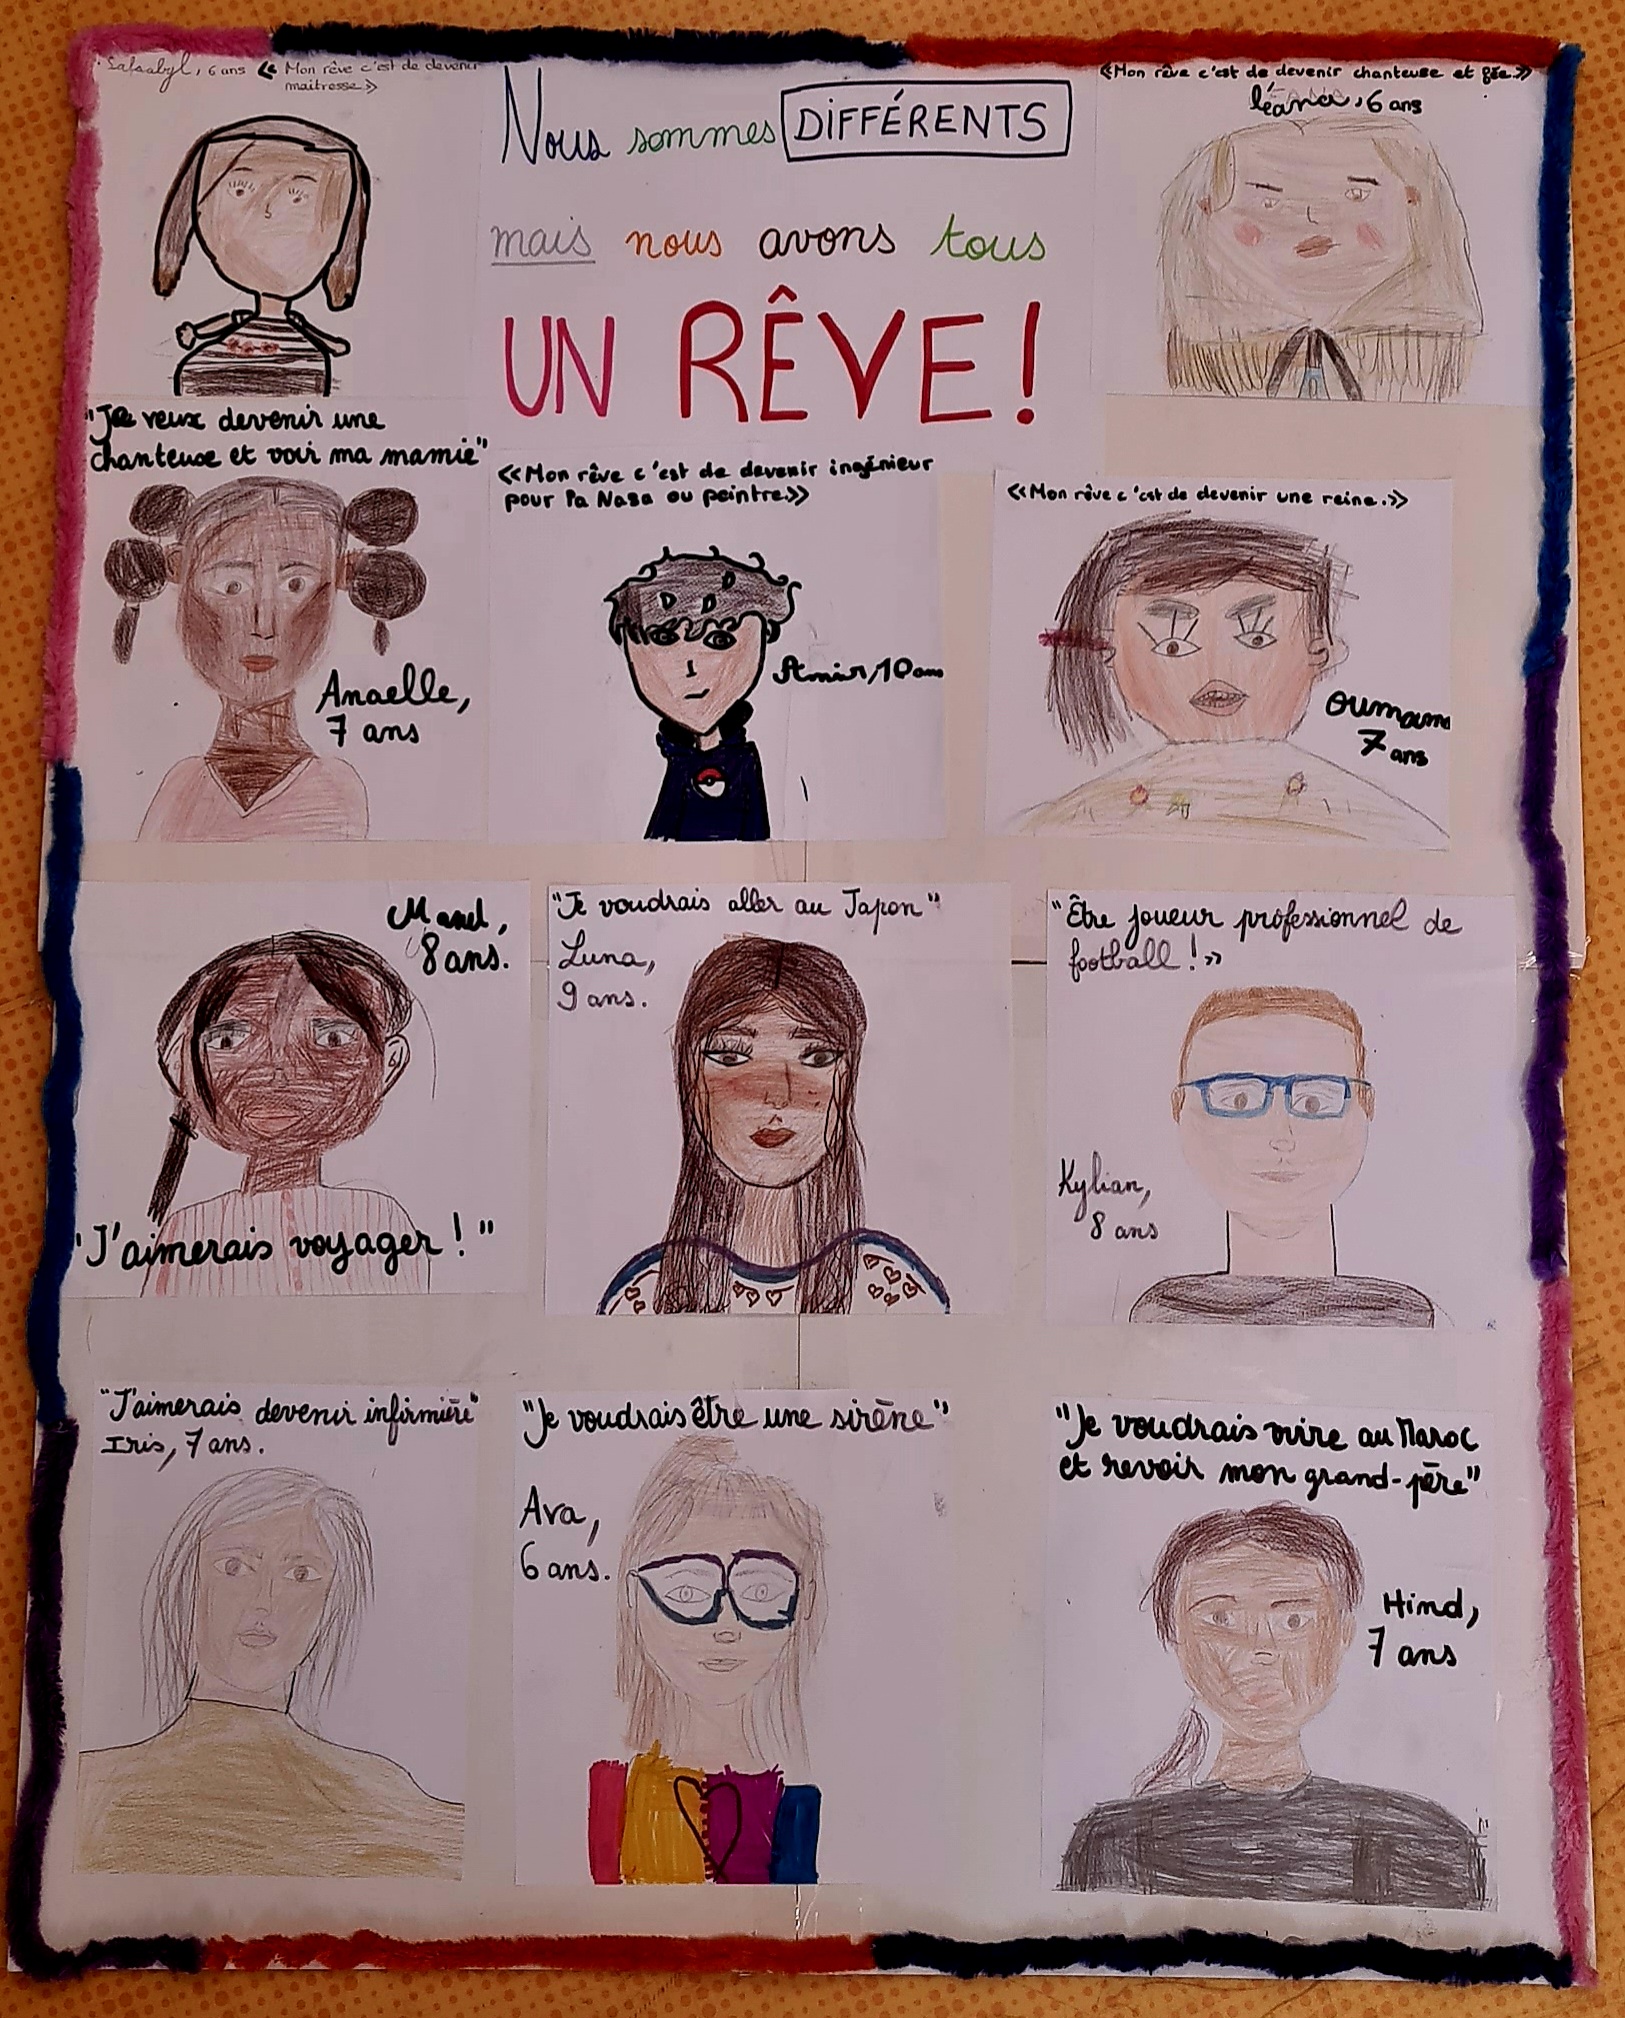 6 ans « Mon rêve c'est de devenir
maitresse»
Nous sommes DIFFÉRENTS
mais nous avons tous
UN RÊVE!
«Mon rêve c'est de devenir chanteuse et fée.»
léana, 6 ans
"Je veux devenir une
chanteuse et voir ma mamie"
Anaelle,
7 ans
«Mon rêve c'est de devenir ingénieur
pour la Nasa ou peintre»
Amir, 10 ans
«Mon rêve c'est de devenir une reine.»
7 ans
Manel,
8 ans.
"J'aimerais voyager ! "
"Je voudrais aller au Japon"
Luna,
9 ans.
"Être joueur professionnel de
football ! »
Kylian,
8 ans
"J'aimerais devenir infirmière"
Iris, 7 ans.
"Je voudrais être une sirène"
Ava,
6 ans.
"Je voudrais vivre au Maroc
et revoir mon grand-père"
Hind,
7 ans